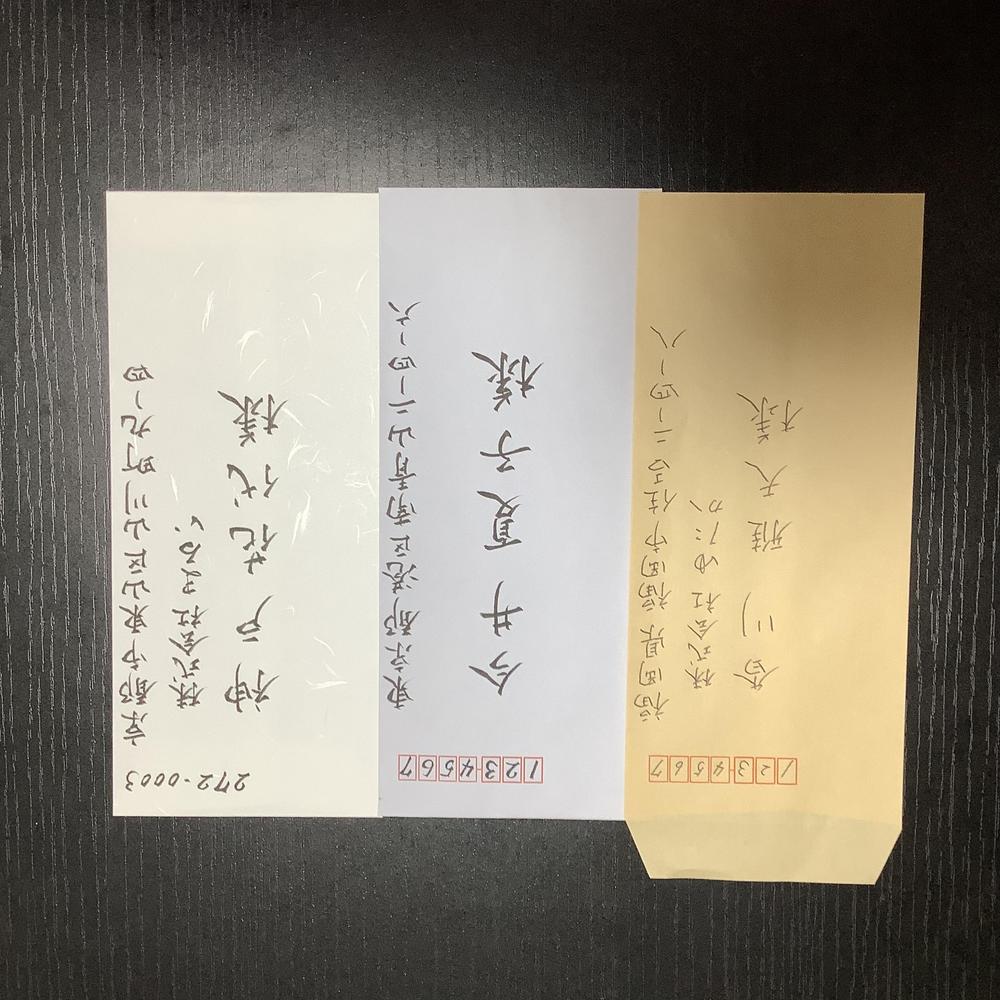 272-0003
京都市東山区山川町九ー四
株式会社まるい
神戸 花代様
1234567
東京都港区南青山二ー四ー六
今井 夏子様
1234567
福岡県福岡市住吉二ー四ー八
株式会社ゆたか
香川 雅夫様